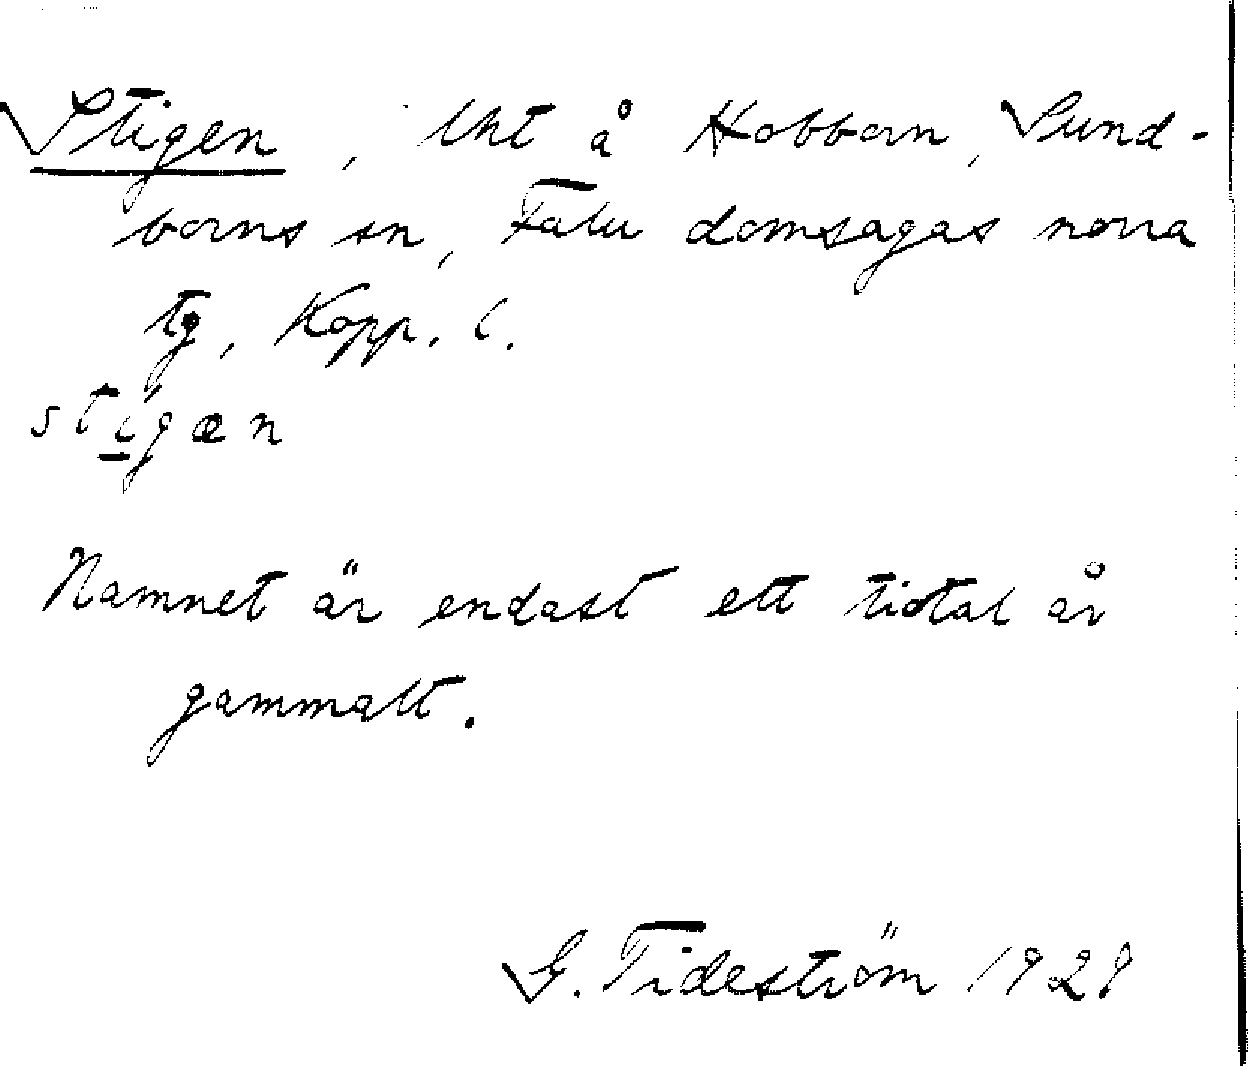 Stigen, lht å Hobborn, Sund-
borns sn, Falu domsagas norra
tg, Kopp. l.
stigæn
Namnet är endast ett tiotal år
gammalt.
G. Tideström 1929